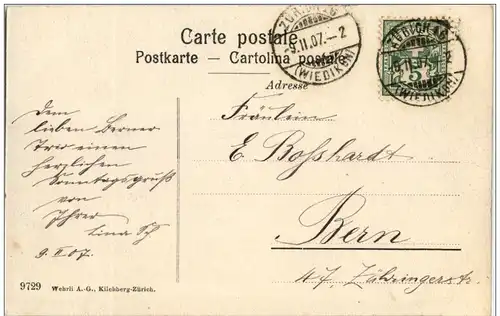 Carte postale
Postkarte — Cartolina postale
Adresse
ZÜRICH
9.II.07.–2
(WIEDIKON)
ZÜRICH
9.II.07.–2
(WIEDIKON)
5
Dem
lieben Berner
Trio einen
herzlichen
Sonntagsgruß
von
Ihrer
Lina
9.II.07.
Fräulein
E. Boßhardt
Bern
47. Zähringerstr.
9729 Wehrli A.-G., Kilchberg-Zürich.